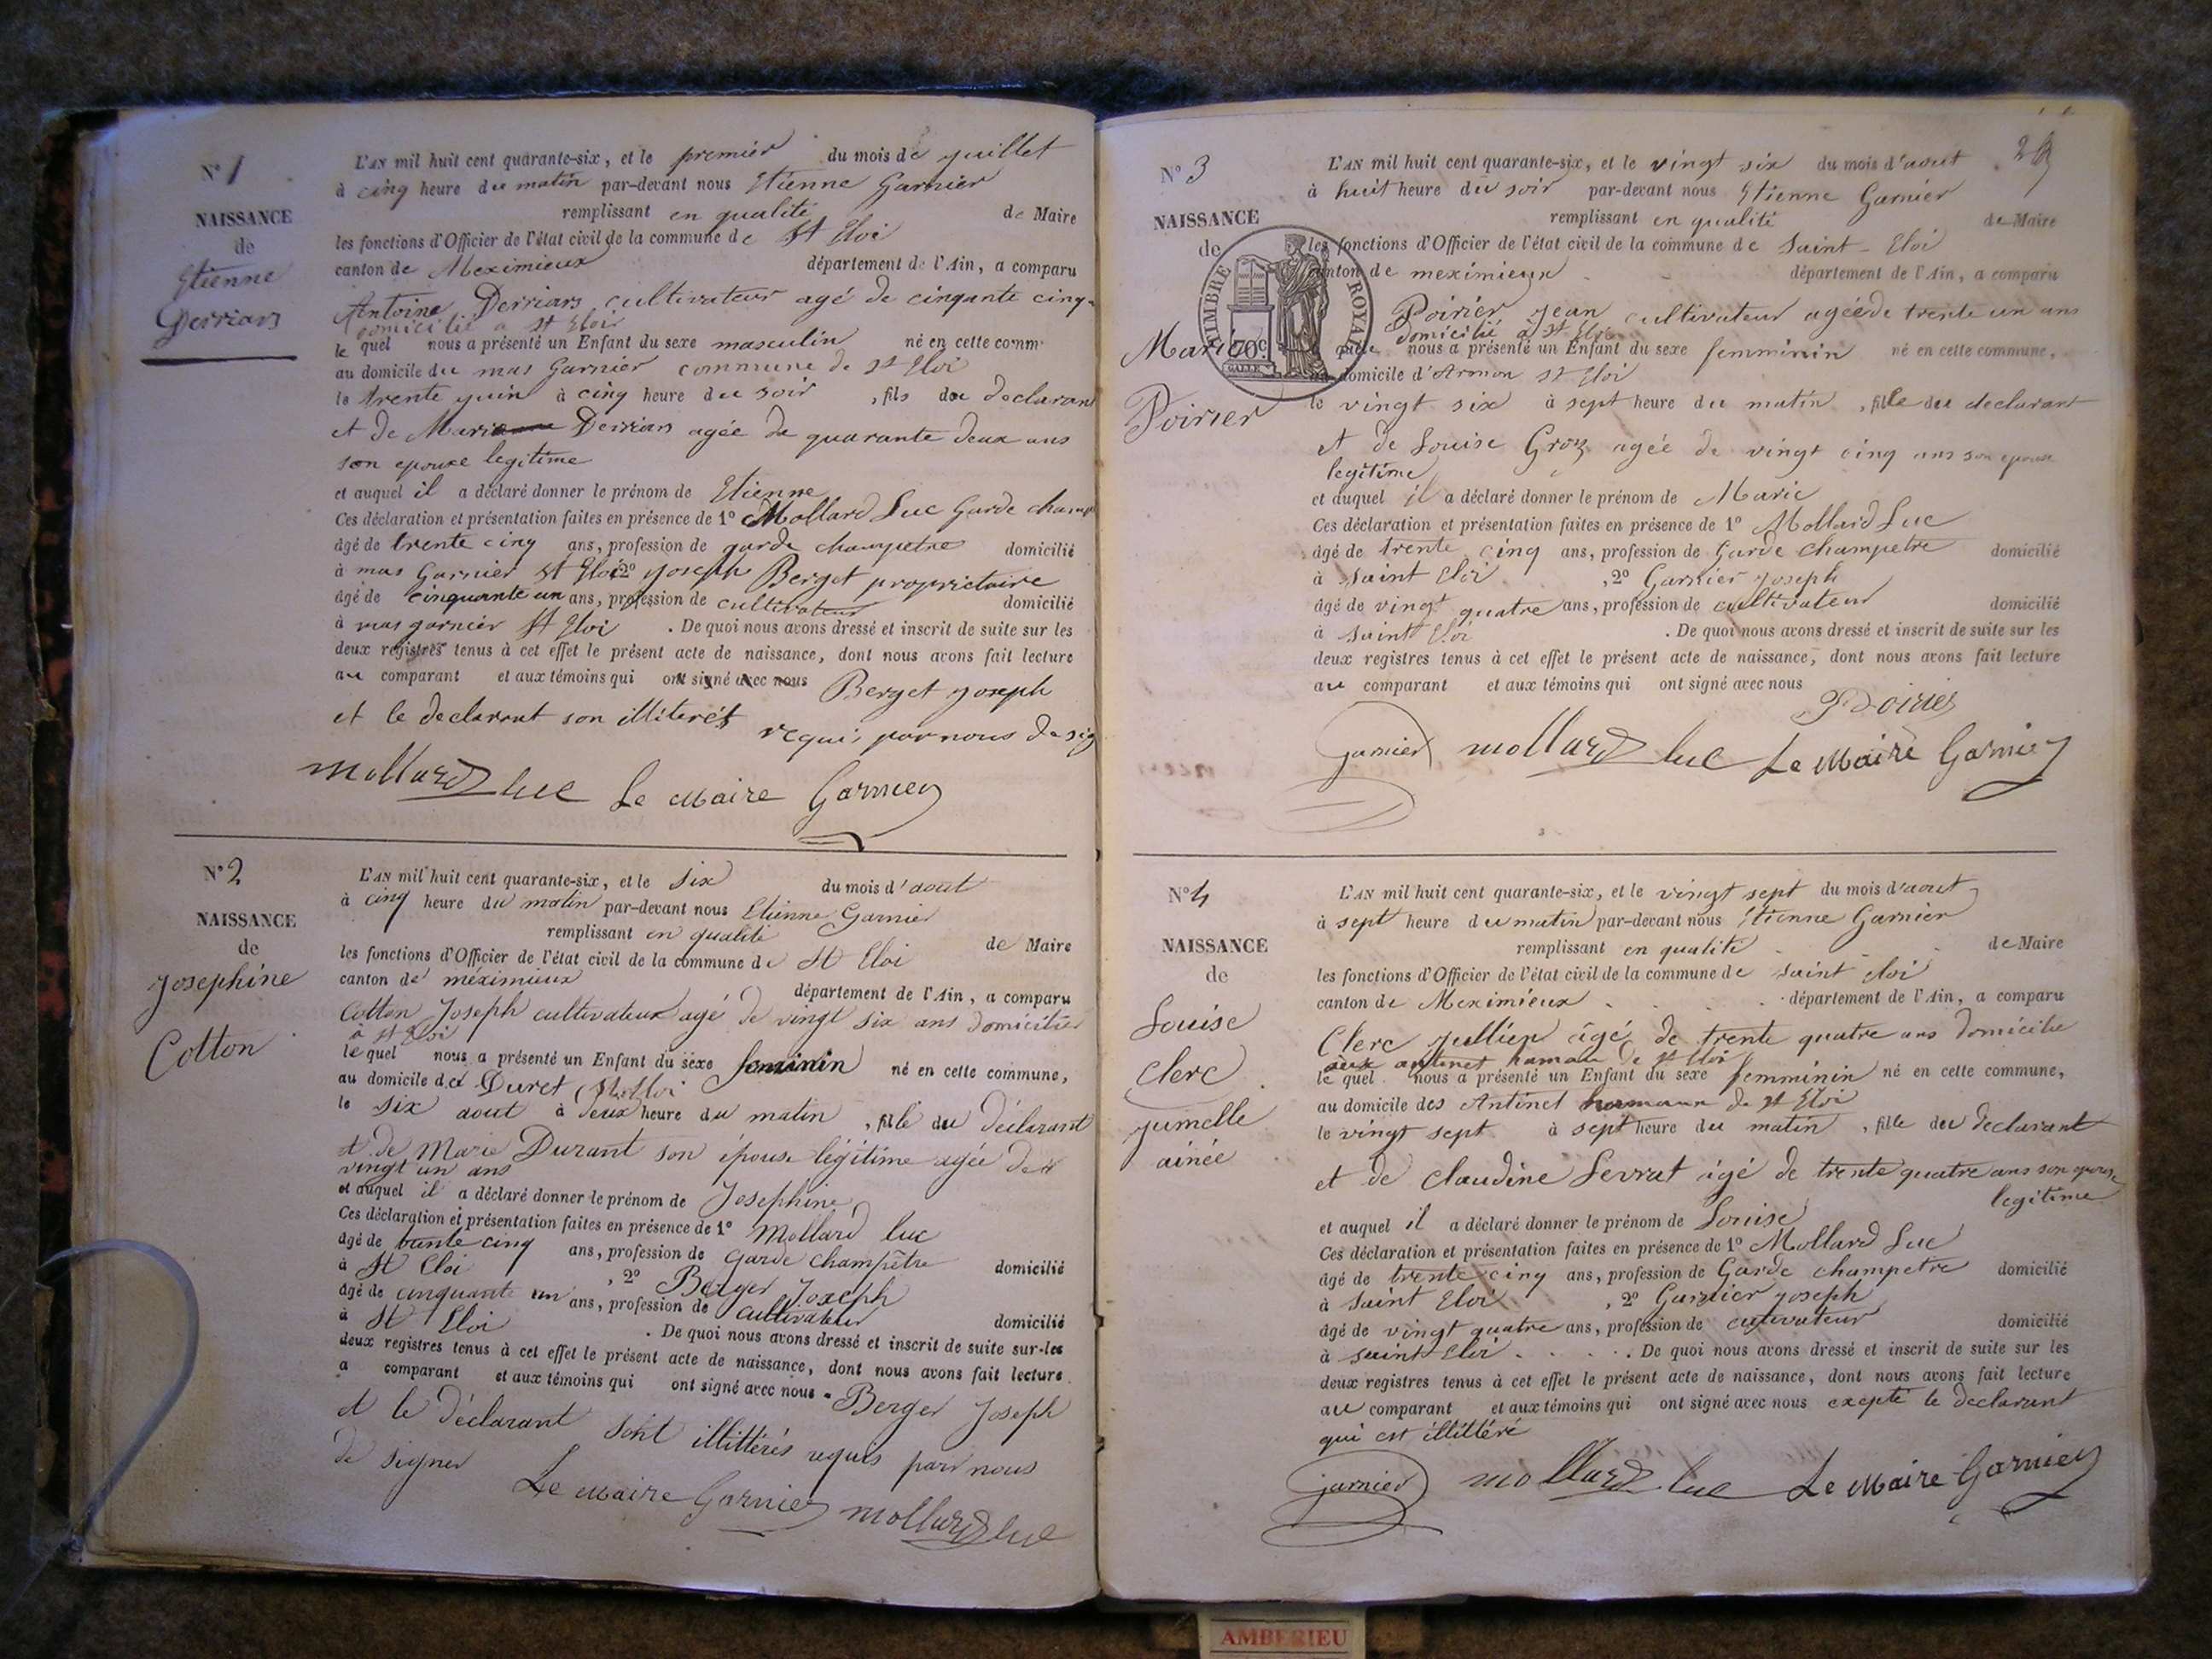 N° 1
NAISSANCE
de
Etienne
Derrias
L'AN mil huit cent quarante-six, et le premier du mois de juillet
à cinq heure du matin par-devant nous Etienne Garnier
remplissant en qualité de Maire
les fonctions d'Officier de l'état civil de la commune de St Eloi
canton de Meximieux département de l'Ain, a comparu
Antoine Derrias cultivateur agé de cinquante cinq
domicilié a St Eloi
le quel nous a présenté un Enfant du sexe masculin né en cette comm
au domicile du mas Garnier commune de St Eloi
le trente juin à cinq heure du soir , fils du declarant
et de Marie Derrias agée de quarante deux ans
son epouse legitime
et auquel il a déclaré donner le prénom de Etienne
Ces déclaration et présentation faites en présence de 1° Mollard Luc Garde champ
âgé de trente cinq ans, profession de garde champetre domicilié
à mas Garnier St Eloi 2° joseph Berget proprietaire
âgé de cinquante un ans, profession de cultivateur domicilié
à mas garnier St Eloi . De quoi nous avons dressé et inscrit de suite sur les
deux registres tenus à cet effet le présent acte de naissance, dont nous avons fait lecture
au comparant et aux témoins qui ont signé avec nous Berget joseph
et le declarant son illiterés requis par nous de sig
mollard luc Le Maire Garnier
N° 2
NAISSANCE
de
josephine
Cotton
L'AN mil huit cent quarante-six, et le six du mois d'aout
à cinq heure du matin par-devant nous Etienne Garnier
remplissant en qualité de Maire
les fonctions d'Officier de l'état civil de la commune de St Eloi
canton de méximieux département de l'Ain, a comparu
Cotton Joseph cultivateur agé de vingt six ans domicilié
à St Eloi
le quel nous a présenté un Enfant du sexe feminin né en cette commune,
au domicile de Duret St Eloi
le six aout à deux heure du matin , fille du déclarant
et de Marie Durant son épouse légitime agée de
vingt un ans
et auquel il a déclaré donner le prénom de Josephine
Ces déclaration et présentation faites en présence de 1° Mollard luc
âgé de trente cinq ans, profession de garde champêtre domicilié
à St Eloi , 2° Berger Joseph
âgé de cinquante un ans, profession de cultivateur domicilié
à St Eloi . De quoi nous avons dressé et inscrit de suite sur les
deux registres tenus à cet effet le présent acte de naissance, dont nous avons fait lecture
a comparant et aux témoins qui ont signé avec nous Berger Joseph
et le déclarant sont illittérés requis par nous
de signer
Le Maire Garnier mollard luc
N° 3
NAISSANCE
de
Marie
Poirier
TIMBRE ROYAL
70c
L'AN mil huit cent quarante-six, et le vingt six du mois d'aout
à huit heure du soir par-devant nous Etienne Garnier
remplissant en qualité de Maire
les fonctions d'Officier de l'état civil de la commune de Saint-Eloi
canton de meximieux département de l'Ain, a comparu
Poirier jean cultivateur agée de trente un ans
domicilié à St Eloi
quel nous a présenté un Enfant du sexe femminin né en cette commune,
domicile d'Armon St Eloi
le vingt six à sept heure du matin , fille du declarant
et de Louise Groz agée de vingt cinq ans son epouse
legitime
et auquel il a déclaré donner le prénom de Marie
Ces déclaration et présentation faites en présence de 1° Mollard Luc
âgé de trente cinq ans, profession de Garde champetre domicilié
à saint Eloi , 2° Garnier joseph
âgé de vingt quatre ans, profession de cultivateur domicilié
à saint Eloi . De quoi nous avons dressé et inscrit de suite sur les
deux registres tenus à cet effet le présent acte de naissance, dont nous avons fait lecture
au comparant et aux témoins qui ont signé avec nous
Poirier
Garnier mollard luc Le Maire Garnier
N° 4
NAISSANCE
de
Louise
Clerc
jumelle
ainée
L'AN mil huit cent quarante-six, et le vingt sept du mois d'aout
à sept heure du matin par-devant nous Etienne Garnier
remplissant en qualité de Maire
les fonctions d'Officier de l'état civil de la commune de saint Eloi
canton de Meximieux département de l'Ain, a comparu
Clerc jullien âgé de trente quatre ans domicilié
aux antinet hamau de St Eloi
le quel nous a présenté un Enfant du sexe femminin né en cette commune,
au domicile des Antinet hamau de St Eloi
le vingt sept à sept heure du matin , fille du declarant
et de Claudine Serrat âgé de trente quatre ans son epouse
legitime
et auquel il a déclaré donner le prénom de Louise
Ces déclaration et présentation faites en présence de 1° Mollard Luc
âgé de trente cinq ans, profession de Garde champetre domicilié
à saint Eloi , 2° Garnier joseph
âgé de vingt quatre ans, profession de cutivateur domicilié
à saint Eloi . De quoi nous avons dressé et inscrit de suite sur les
deux registres tenus à cet effet le présent acte de naissance, dont nous avons fait lecture
au comparant et aux témoins qui ont signé avec nous excpté le declarant
qui est illittéré
Garnier mollard luc Le Maire Garnier
AMBERIEU